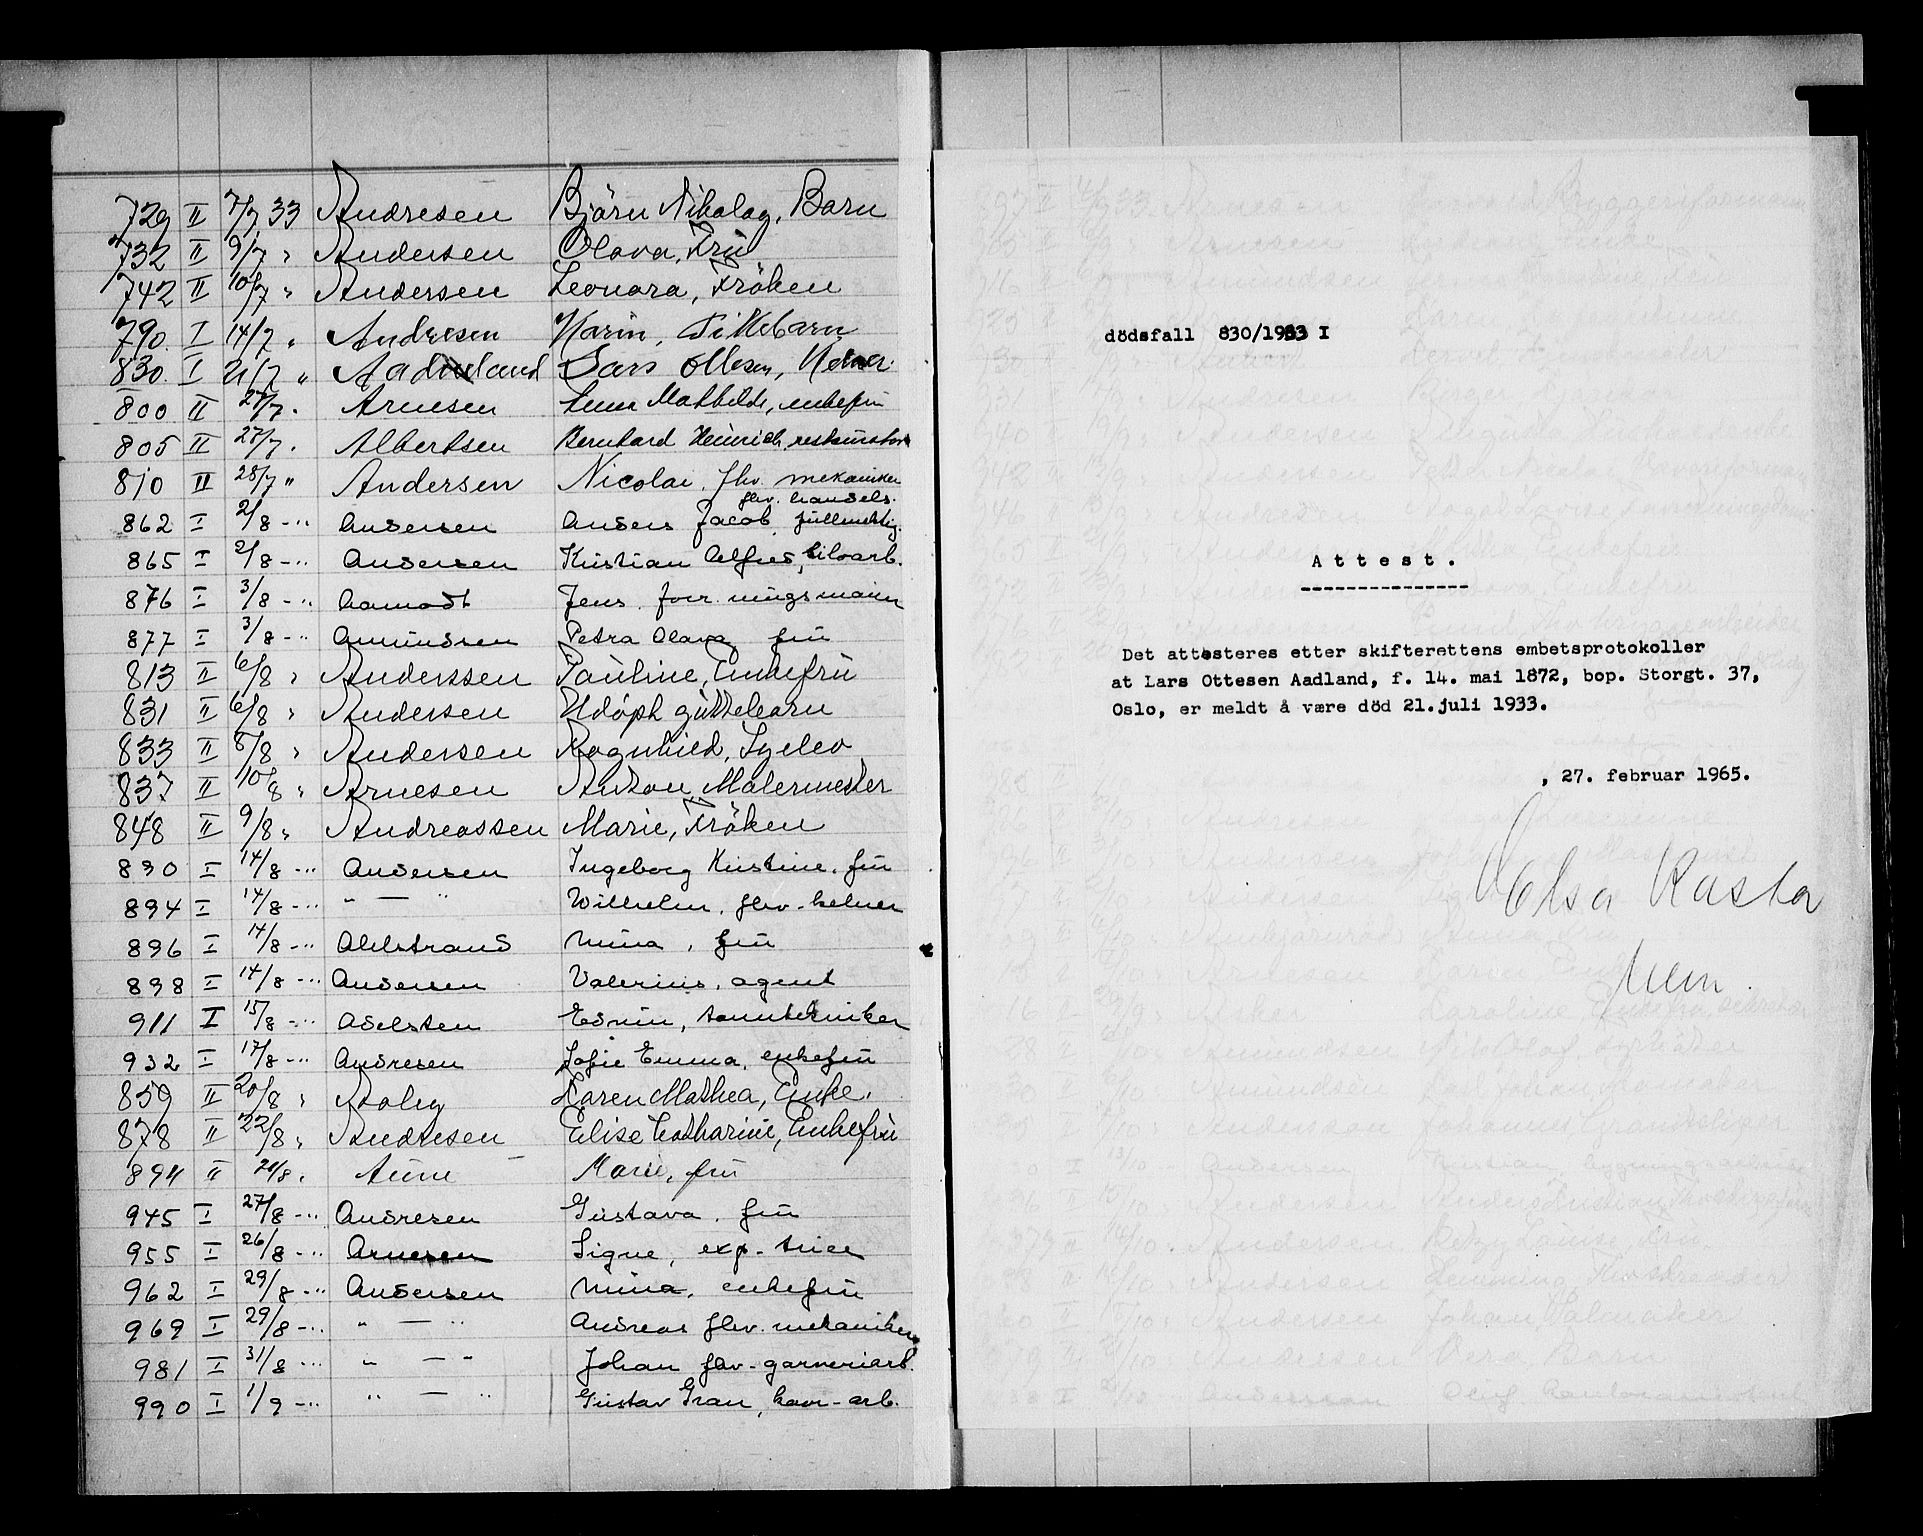 729 II 7/7 33 Andresen Björn Nikolay, Barn
732 II 9/7 " Andersen Olava, Fru
742 II 10/7 " Andersen Leonora, Fröken
790. I 14/7 " Andresen Karin, Pikebarn
830. I 21/7 " Aadland Lars Ottesen, Kelner.
800 II 27/7 . Arnesen Mathilde, enkefru
805 II 27/7 . Albertsen Bernhard Heinrich, restauratør
810 II 28/7 " Andersen Nicolai, fhv. mekaniker
fhv. handels.
862 I 2/8 -" Andersen Anders Jacob, fullmektig.
865 I 2/8 -" Andersen Kristian Alfred, siloarb.
876 I 3/8 -" Aamodt Jens, forr.ningsmann
877 I 3/8 -" Amundsen Petra Olava, fru
813 II 6/8 " Anderssen Pauline, Enkefru
831 II 6/8 " Andersen Udöpt guttebarn
833 II 8/8 " Andersen Ragnhild,
837 II 10/8 " Arnesen Anton, Malermester
848 II 9/8 " Andreassen Marie, Fröken
890 I 14/8 -" Andersen Ingeborg Kristine, fru
894 I 14/8 -" " — " Wilhelm, fhv. kelner
896 I 14/8 -" Ahlstrand Mina, fru
898 I 14/8 -" Andersen Valerius, agent
911 I 15/8 -" Adelsten Edvin, tanntekniker
932 I 17/8 -" Andresen Sofie Emma, enkefru
859 II 20/8 " Aaby Karen Mathea, Enke.
878 II 22/8 " Andresen Elise Catharine, Enkefru
894 II 21/8 . Aune Marie, fru
945 I 27/8 -" Andresen Gustava, fru
955 I 26/8 -" Arnesen Signe, exp.trice
962 I 29/8 -" Andersen Mina, enkefru
969 I 29/8 -" " — " Andreas fhv. mekaniker
981 I 31/8 -" " — " Johan fhv. garveriarb.
990 I 1/9 -" " — " Gustav Gran, havn-arb.
dödsfall 830/1933 I
Attest.
---------------
Det attesteres etter skifterettens embetsprotokoller
at Lars Ottesen Aadland, f. 14. mai 1872, bop. Storgt. 37,
Oslo, er meldt å være død 21.juli 1933.
, 27. februar 1965.
Elsa